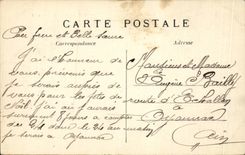 CARTE POSTALE
Correspondance
Adresse
Cher frère et Belle Sœur
J'ai l'honneur de
vous prévenir que
je serai auprès de
vous pour les fêtes de
Noël. J'ai
jours à compter
du 24 dans le 25 au matin
je serai à Oyonnax
Monsieur et Madame
Eugène
route d'Echallon
Oyonnax
Ain